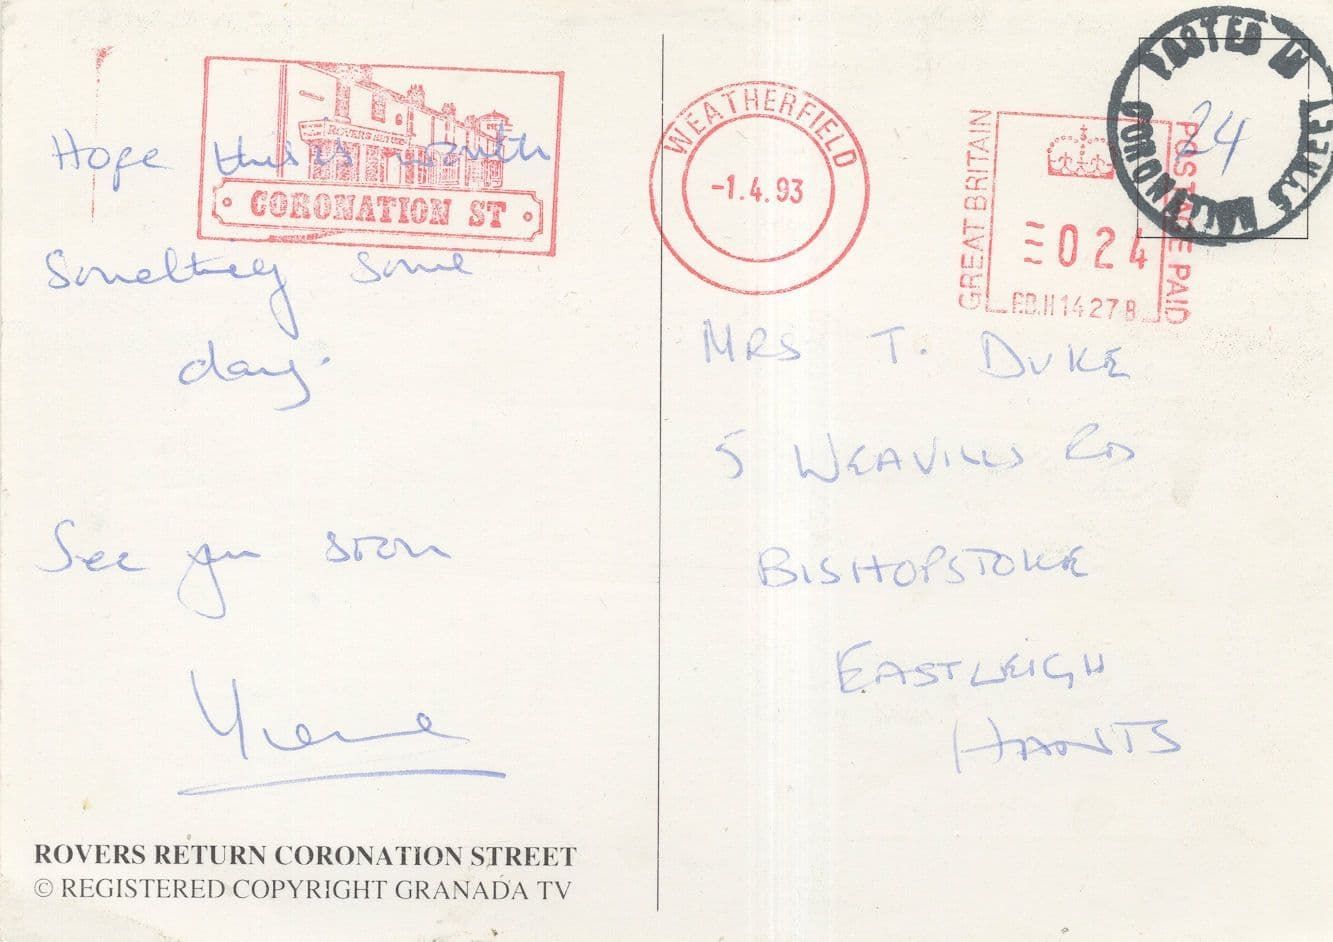 ROVERS RETURN
CORONATION ST
Hope this is worth
Something some
day.
See you soon
ROVERS RETURN CORONATION STREET
© REGISTERED COPYRIGHT GRANADA TV
WEATHERFIELD
-1.4.93
GREAT BRITAIN
024
P.B.H14278
POSTAGE PAID
POSTED IN
24
MRS T. DUKE
5 WEAVILLS RD
BISHOPSTOKE
EASTLEIGH
HANTS